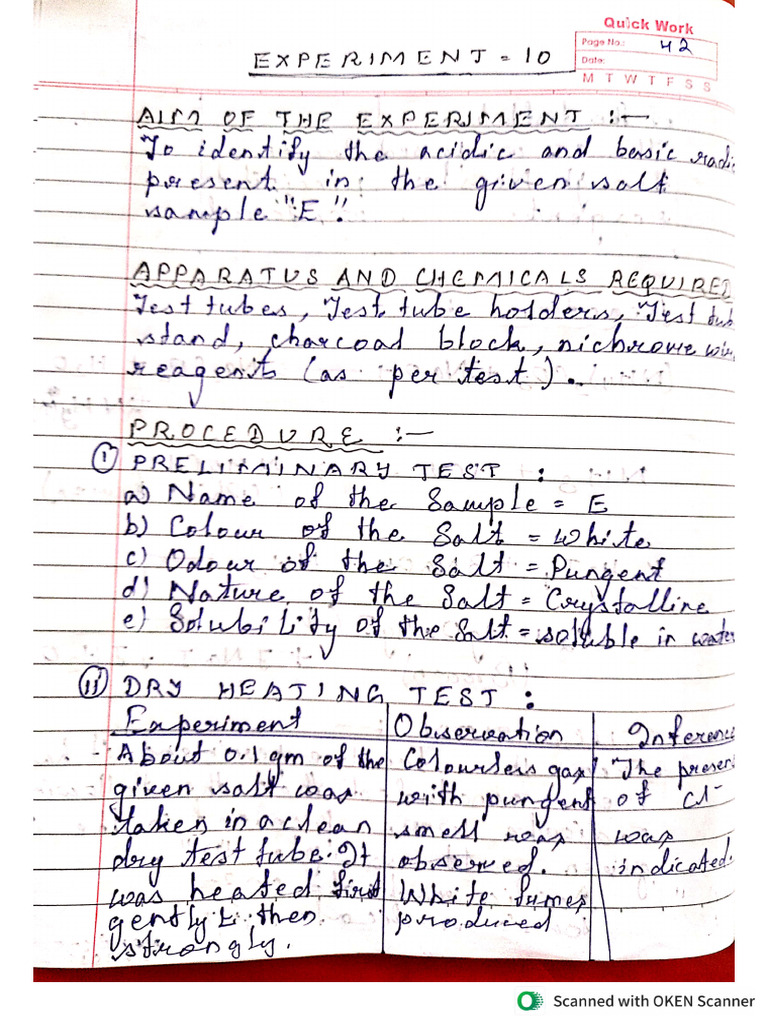 Quick Work
Page No.: 42
Date:
M T W T F S S
EXPERIMENT - 10
AIM OF THE EXPERIMENT :-
To identify the acidic and basic radi
present in the given salt
sample "E".
APPARATUS AND CHEMICALS REQUIRED
Test tubes, Test tube holders, Test tub
stand, charcoal block, nichrome wir
reagents (as per test).
PROCEDURE :-
(i) PRELIMINARY TEST :
a) Name of the Sample = E
b) Colour of the Salt = White
c) Odour of the Salt = Pungent
d) Nature of the Salt = Crystalline
e) Solubility of the Salt = soluble in water
(ii) DRY HEATING TEST :
Experiment Observation Inference
About 0.1 gm of the Colourless gas The presen
given salt was with pungent of Cl-
taken in a clean smell was was
dry test tube. It observed. indicated.
was heated first White fumes
gently & then produced
strongly.
Scanned with OKEN Scanner